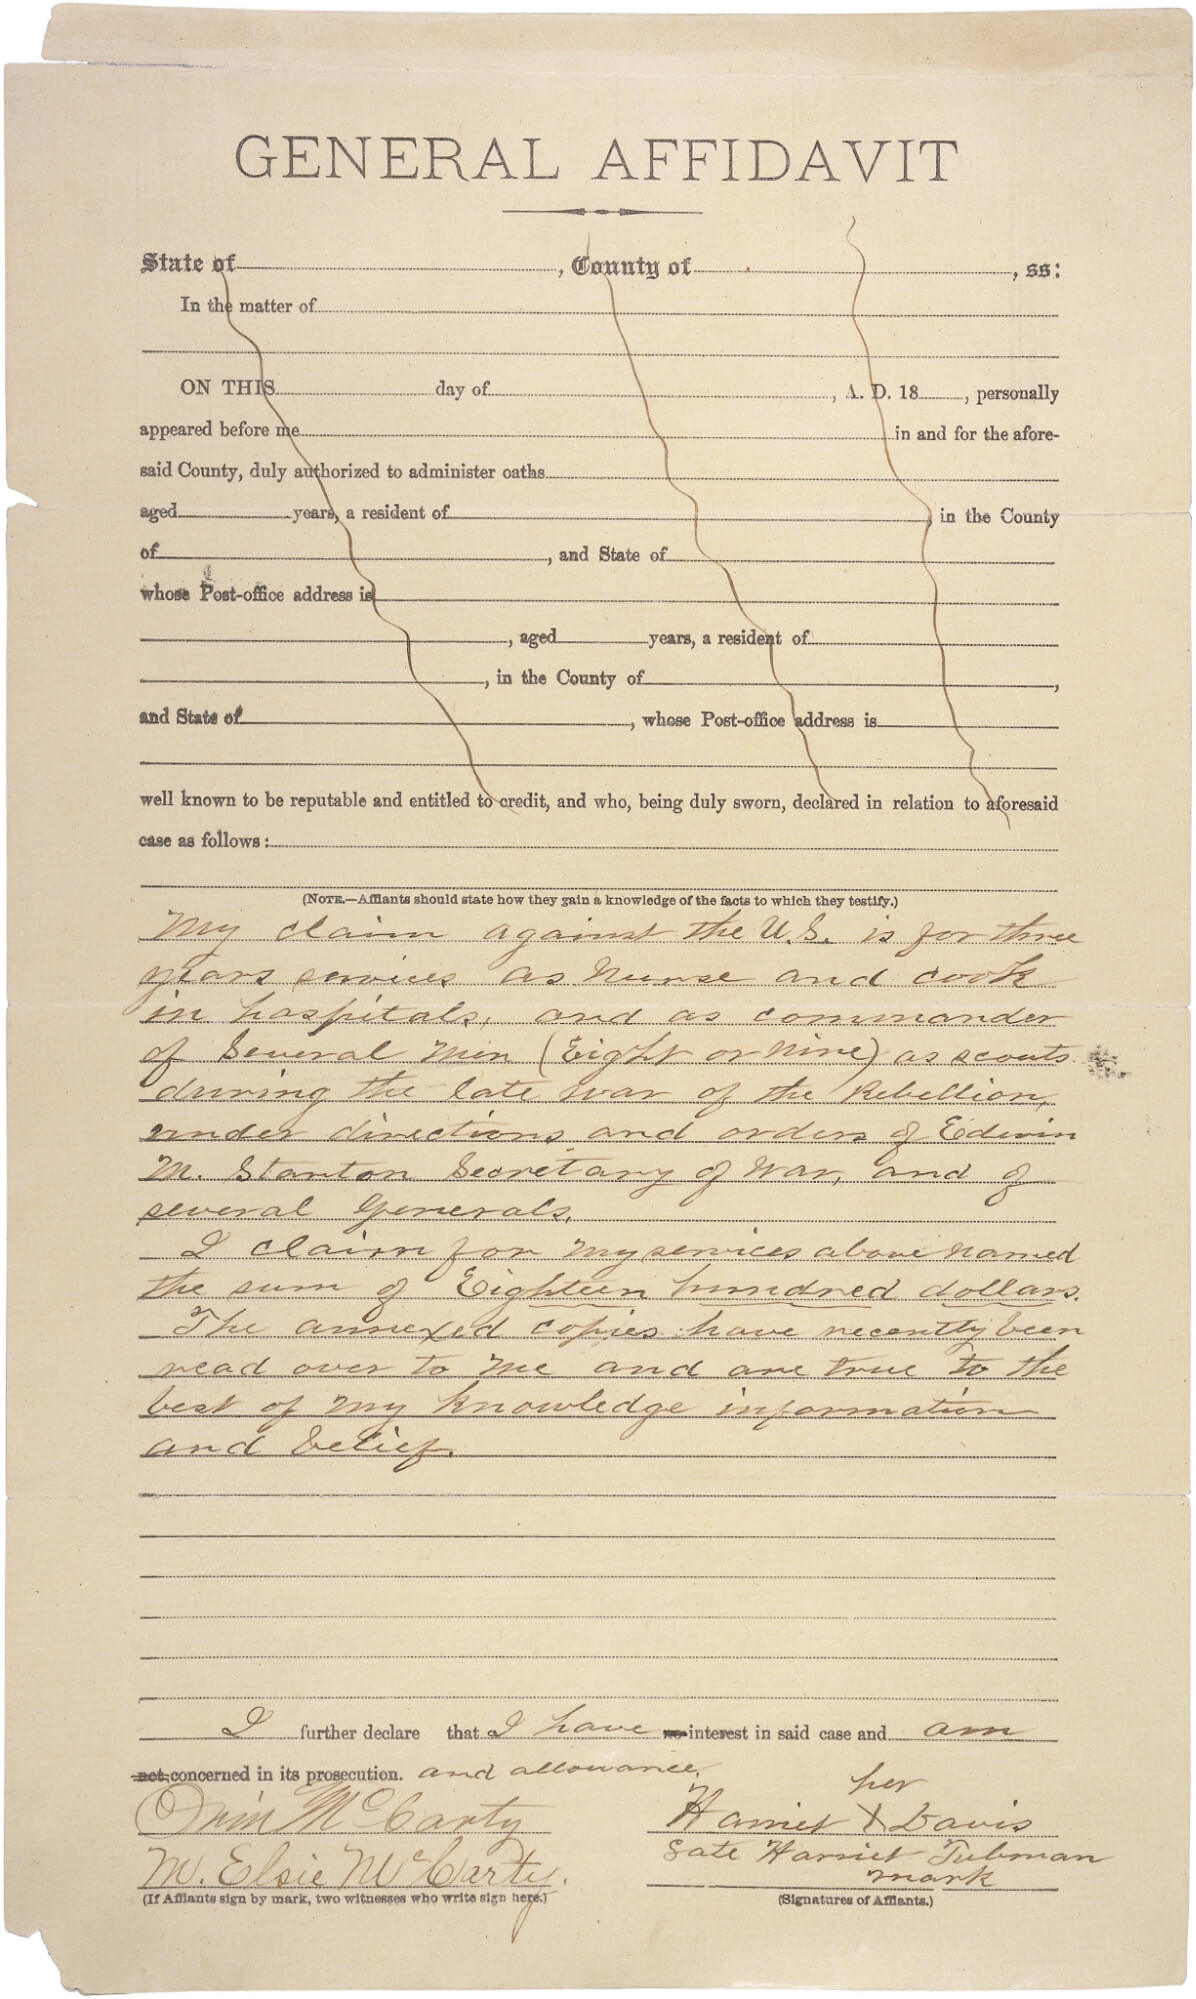 GENERAL AFFIDAVIT
State of , County of , ss:
In the matter of
ON THIS day of , A. D. 18 , personally
appeared before me in and for the afore-
said County, duly authorized to administer oaths
aged years, a resident of in the County
of , and State of
whose Post-office address is
, aged years, a resident of
, in the County of ,
and State of , whose Post-office address is
well known to be reputable and entitled to credit, and who, being duly sworn, declared in relation to aforesaid
case as follows:
(NOTE.—Affiants should state how they gain a knowledge of the facts to which they testify.)
My claim against the U.S. is for three
years services as nurse and cook
in hospitals, and as commander
of Several Men (Eight or Nine) as scouts
during the late war of the Rebellion,
under directions and orders of Edwin
M. Stanton Secretary of War, and of
several Generals.
I claim for my services above named
the sum of Eighteen hundred dollars.
The annexed copies have recently been
read over to me and are true to the
best of my knowledge information
and belief.
I further declare that I have no interest in said case and am
not concerned in its prosecution. and allowance.
her
Orin McCarty Harriet X Davis
late Harriet Tubman
M. Elsie McCarty. mark
(If Affiants sign by mark, two witnesses who write sign here.) (Signatures of Affiants.)